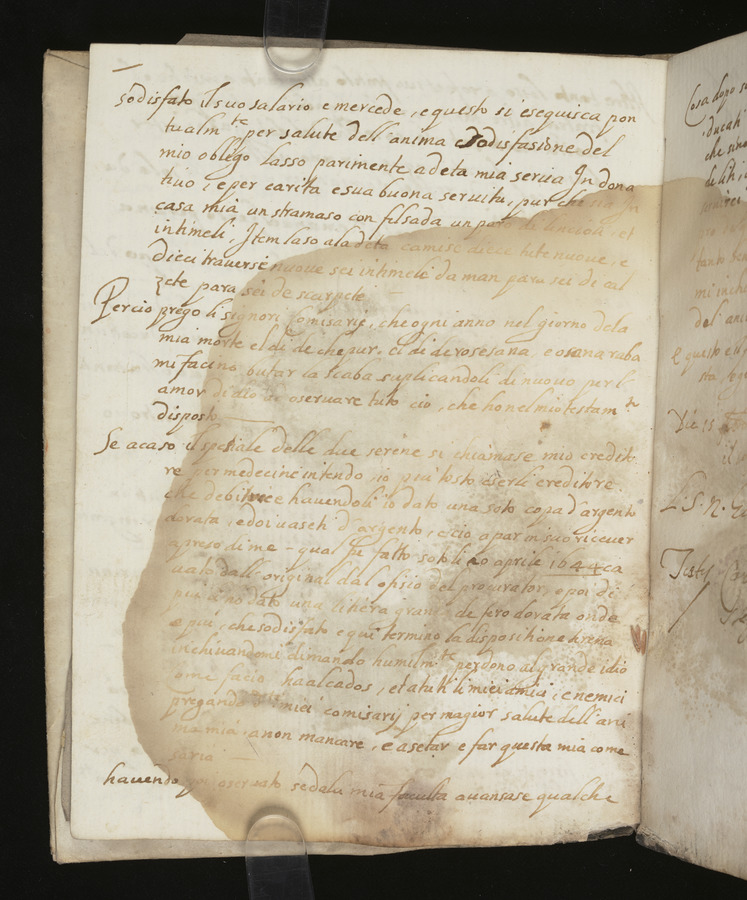 sodisfato il suo salario e mercede, e questo si eseguisca pon
tualm.te per salute dell'anima e sodisfasione del
mio oblego lasso parimente a deta mia serva In dona
tivo, e per carita e sua buona servitu, pur che sia In
casa mia un stramaso con filsada un paro di lincioli, et
intimeli, Item laso ala deta camise diece tute nuove, e
dieci traverse nuove sei intimele da man para sei de cal
zete para sei de scarpete
Percio prego li signori Comisarij, che ogni anno nel giorno dela
mia morte el di de chepur, el di de rosesana, e osana raba
mi facino butar la scaba suplicandoli di nuovo per l
amor di dio di oservare tuto cio, che ho nel mio testam.to
disposto
Se acaso il spetiale delle due serene si chiamase mio credit
re per medecine intendo io piu tosto eserli creditore
che debitore havendoli io dato una soto copa d'argento
dorata, e doi vaseti d'argento, e cio apar in suo ricever
apreso di me - qual fu fatto soto li 20 aprile 1644 ca
vato dall'original dal ofisio del procurator, e poi di
piu li ho dato una litiera grande de fero dorata onde
e piu, che sodisfato e qui termino la dispositione terena
inchinandomi dimando humilm.te perdono al grande idio
ome facio haalcados, et a tuti li miei amici, e nemici
pregando li miei comisarij per magior salute dell'ani
ma mia, a non mancare, e a setar e far questa mia come
saria
havendo poi oservato se dala mia faculta avansase qualche
Cosa dopo
ducati
che sino